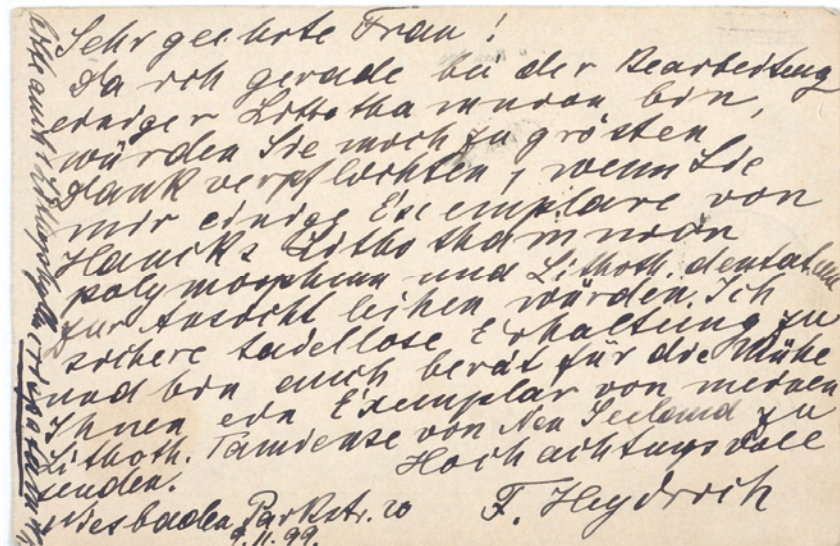 Sehr geehrte Frau!
Da ich gerade bei der Bearbeitung
einiger Lithothamnion bin,
würden Sie mich zu grösten
Dank verpflichten, wenn Sie
mir einige Exemplare von
Haucks Lithothamnion
polymorphum und Lithoth. dentatum
zur Ansicht leihen würden. Ich
sichere tadellose Erhaltung zu
und bin auch berät für die Mühe
Ihnen ein Exemplar von meinen
Lithoth. Tamiense von Neu Seeland zu
senden.
Hochachtungsvoll
Wiesbaden Parkstr. 20
F. Heydrich
9.11.99.
Lithophyllum